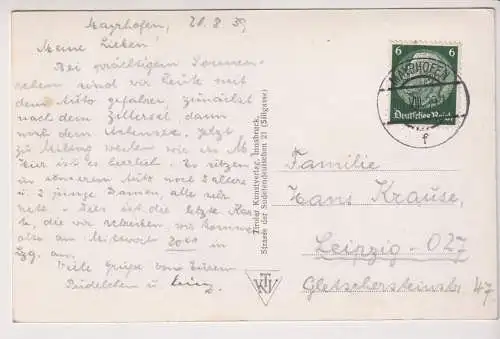 Mayrhofen, 20.8.39
Meine Lieben!
Bei prächtigem Sonnen-
schein sind wir heute mit
dem Auto gefahren, zunächst
nach dem Zillertal, dann
nach dem Achensee. Jetzt
Hier ist es herrlich. Es sitzen
in unserem Auto noch 2 ältere
u. 2 junge Damen, alle sehr
nett. Dies ist die letzte Kar-
te, die wir schreiben, wir kommen
also am Mittwoch 20.01 in
Lzg. an.
Viele Grüße von Euren
u. Heinz
Tiroler Kunstverlag, Innsbruck,
Strasse der Sudetendeutschen 21 (Sillgasse)
KTV
6 6
Deutsches Reich
MAYRHOFEN
f
Familie
Hans Krause,
Leipzig-O 27
Gletschersteinstr. 47